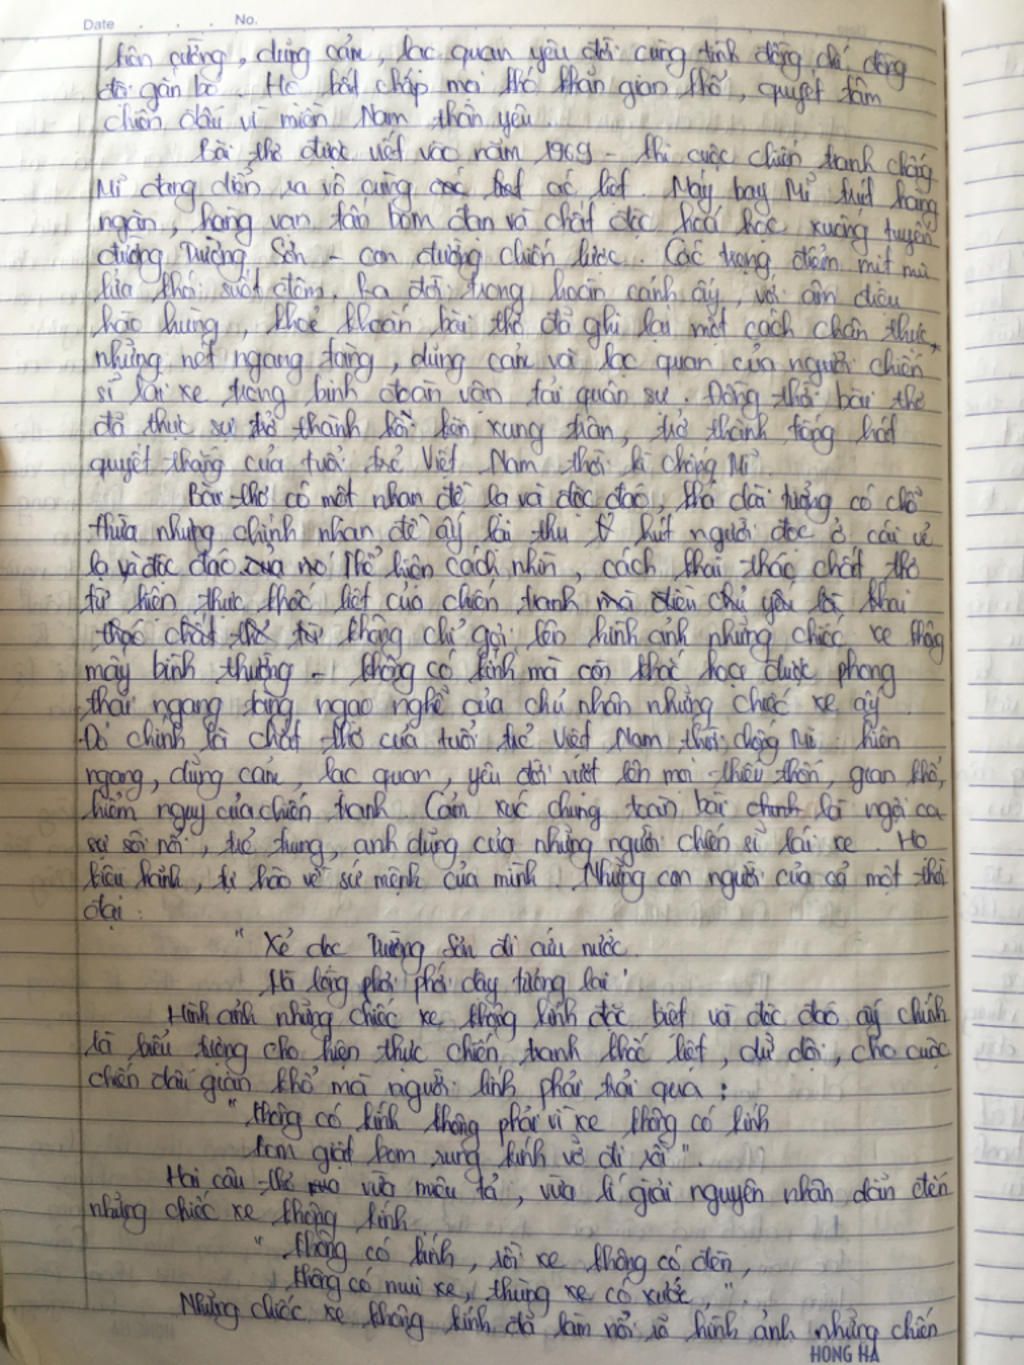 Date No.
kiên cường, dũng cảm, lạc quan yêu đời cùng tình đồng chí đồng
đội gắn bó. Họ bất chấp mọi khó khăn gian khổ, quyết tâm
chiến đấu vì miền Nam thân yêu.
Bài thơ được viết vào năm 1969 - khi cuộc chiến tranh chống
Mĩ đang diễn ra vô cùng ác liệt. Máy bay Mĩ hàng
ngàn, hàng vạn tấn bom đạn và chất độc hoá học xuống tuyến
đường Trường Sơn - con đường chiến lược. Các trọng điểm mịt mù
lửa khói suốt đêm. Ra đời trong hoàn cảnh ấy, với âm điệu
hào hùng, khoẻ khoắn bài thơ đã ghi lại một cách chân thực
những nét ngang tàng, dũng cảm và lạc quan của người chiến
sĩ lái xe trong binh đoàn vận tải quân sự. Đồng thời bài thơ
đã thực sự trở thành hồi kèn xung trận, trở thành tiếng hát
quyết thắng của tuổi trẻ Việt Nam thời kì chống Mĩ.
Bài thơ có một nhan đề lạ và độc đáo, khá dài tưởng có chỗ
thừa nhưng chính nhan đề ấy lại thu hút người đọc ở cái vẻ
lạ và độc đáo của nó. Thể hiện cách nhìn, cách khai thác chất thơ
từ hiện thực khốc liệt của chiến tranh mà điều chủ yếu là khai
thác chất thơ từ không chỉ gợi lên hình ảnh những chiếc xe không
mấy bình thường - không có kính mà còn khắc hoạ được phong
thái ngang tàng ngạo nghễ của chủ nhân những chiếc xe ấy.
Đó chính là chất thơ của tuổi trẻ Việt Nam thời chống Mĩ: hiên
ngang, dũng cảm, lạc quan, yêu đời vượt lên mọi thiếu thốn, gian khổ,
hiểm nguy của chiến tranh. Cảm xúc chung toàn bài chính là ngợi ca
sự sôi nổi, trẻ trung, anh dũng của những người chiến sĩ lái xe. Họ
kiêu hãnh, tự hào về sứ mệnh của mình. Những con người của cả một thời
đại:
" Xẻ dọc Trường Sơn đi cứu nước
Mà lòng phơi phới dậy tương lai"
Hình ảnh những chiếc xe không kính đặc biệt và độc đáo ấy chính
là biểu tượng cho hiện thực chiến tranh khốc liệt, dữ dội, cho cuộc
chiến đấu gian khổ mà người lính phải trải qua:
" Không có kính không phải vì xe không có kính
Bom giật bom rung kính vỡ đi rồi".
Hai câu thơ vừa miêu tả, vừa lí giải nguyên nhân dẫn đến
những chiếc xe không kính
" Không có kính, rồi xe không có đèn,
Không có mui xe, thùng xe có xước,"
Những chiếc xe không kính đã làm nổi rõ hình ảnh những chiến
HONG HA